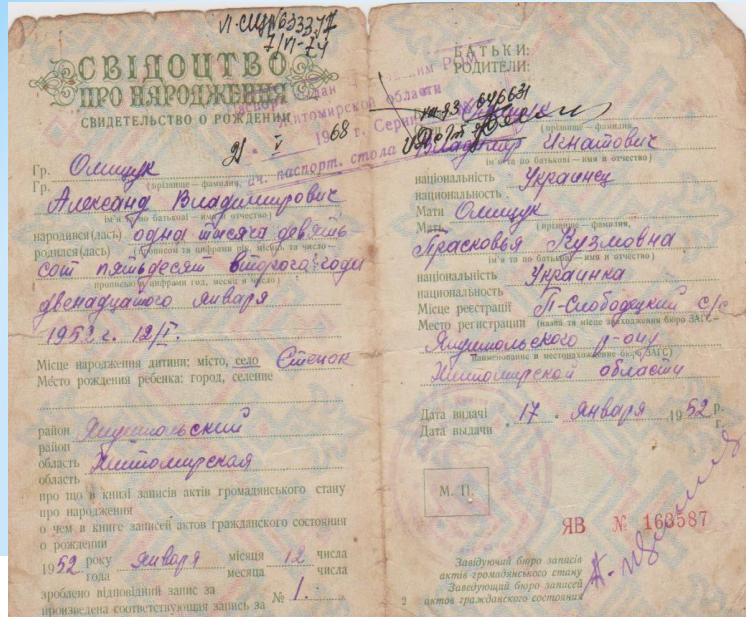 СВІДОЦТВО
ПРО НАРОДЖЕННЯ
СВИДЕТЕЛЬСТВО О РОЖДЕНИИ
7/VI-74
21 V 1968 г.
Житомирской области
нач. паспорт. стола
Гр. Олищук
Гр. (прізвище – фамилия,
Александ Владимирович
ім'я та по батькові – имя и отчество)
народився(лась) одна тисяча девять
родился(лась) (прописом та цифрами рік, місяць та число –
сот пятьдесят второго года
прописью и цифрами год, месяц и число)
двенадцатого января
1952 г. 12/I.
Місце народження дитини: місто, село Стенок
Место рождения ребенка: город, селение
район
район
область Житомирская
область
про що в книзі записів актів громадянського стану
про народження
о чем в книге записей актов гражданского состояния
о рождении
1952 року января місяця 12 числа
года месяца числа
зроблено відповідний запис за № 1.
произведена соответствующая запись за
БАТЬКИ:
РОДИТЕЛИ:
(прізвище – фамилия,
Владимир Игнатович
ім'я та по батькові – имя и отчество)
національність Украинец
национальность
Мати Олищук
Мать (прізвище – фамилия,
Прасковья Кузмовна
ім'я та по батькові – имя и отчество)
національність Украинка
национальность
Місце реєстрації П-Слободецкий с/с
Место регистрации (назва та місце знаходження бюро ЗАГС –
р-ону
наименование и местонахождение бюро ЗАГС)
Житомирской области
Дата видачі 17 января 1952 р.
Дата выдачи г.
М. П.
ЯВ № 163587
Завідуючий бюро записів
актів громадянського стану
Заведующий бюро записей
актов гражданского состояния
2